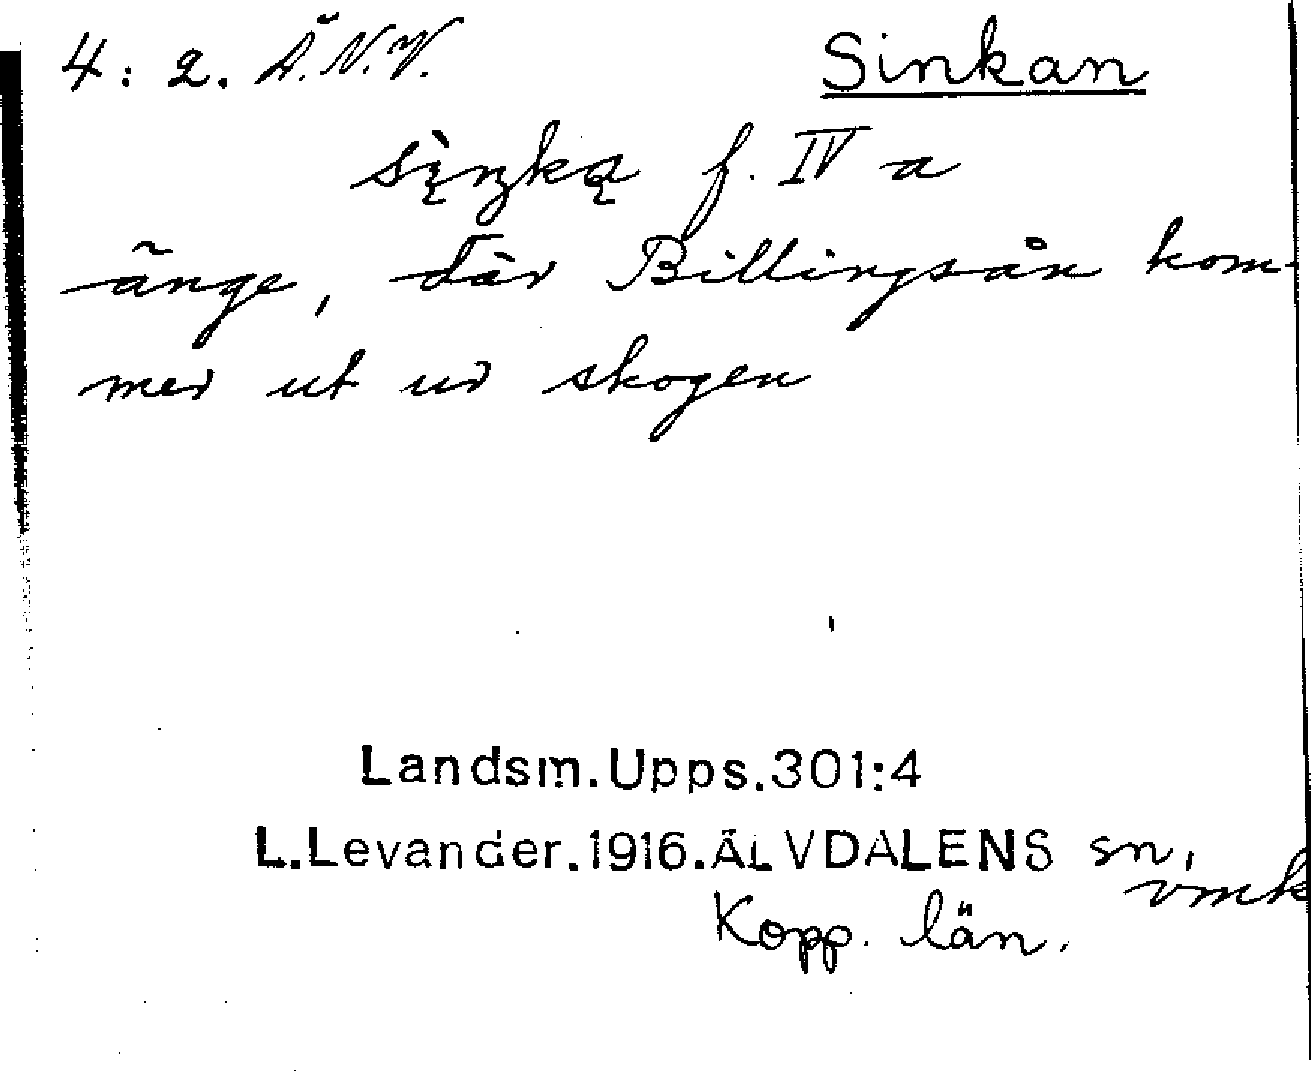 4:2. Ä.N.V. Sinkan
sìŋka f. IV a
änge, där Billingsån kom-
mer ut ur skogen
Landsm.Upps.301:4
L.Levander.1916.ÄLVDALENS sn,
vmk
Kopp. län.